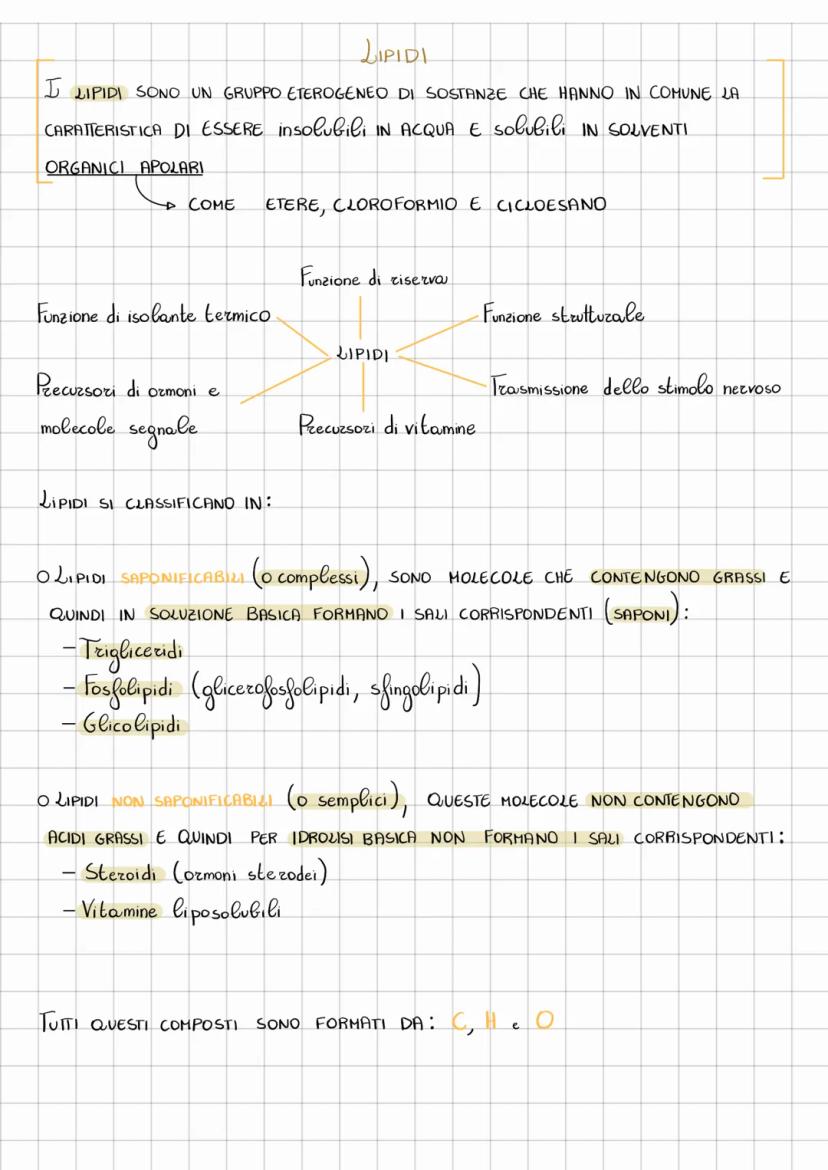 LIPIDI
I LIPIDI SONO UN GRUPPO ETEROGENEO DI SOSTANZE CHE HANNO IN COMUNE LA
CARATTERISTICA DI ESSERE insolubili IN ACQUA E solubili IN SOLVENTI
ORGANICI APOLARI
COME ETERE, CLOROFORMIO E CICLOESANO
Funzione di riserva
Funzione di isolante termico
Funzione strutturale
LIPIDI
Precursori di ormoni e
molecole segnale
Trasmissione dello stimolo nervoso
Precursori di vitamine
LIPIDI SI CLASSIFICANO IN:
O LIPIDI SAPONIFICABILI (o complessi), SONO MOLECOLE CHE CONTENGONO GRASSI E
QUINDI IN SOLUZIONE BASICA FORMANO I SALI CORRISPONDENTI (SAPONI):
- Trigliceridi
- Fosfolipidi (glicerofosfolipidi, sfingolipidi)
- Glicolipidi
O LIPIDI NON SAPONIFICABILI (o semplici), QUESTE MOLECOLE NON CONTENGONO
ACIDI GRASSI E QUINDI PER IDROLISI BASICA NON FORMANO I SALI CORRISPONDENTI:
- Steroidi (ormoni sterodei)
- Vitamine liposolubili
TUTTI QUESTI COMPOSTI SONO FORMATI DA: C, H e O